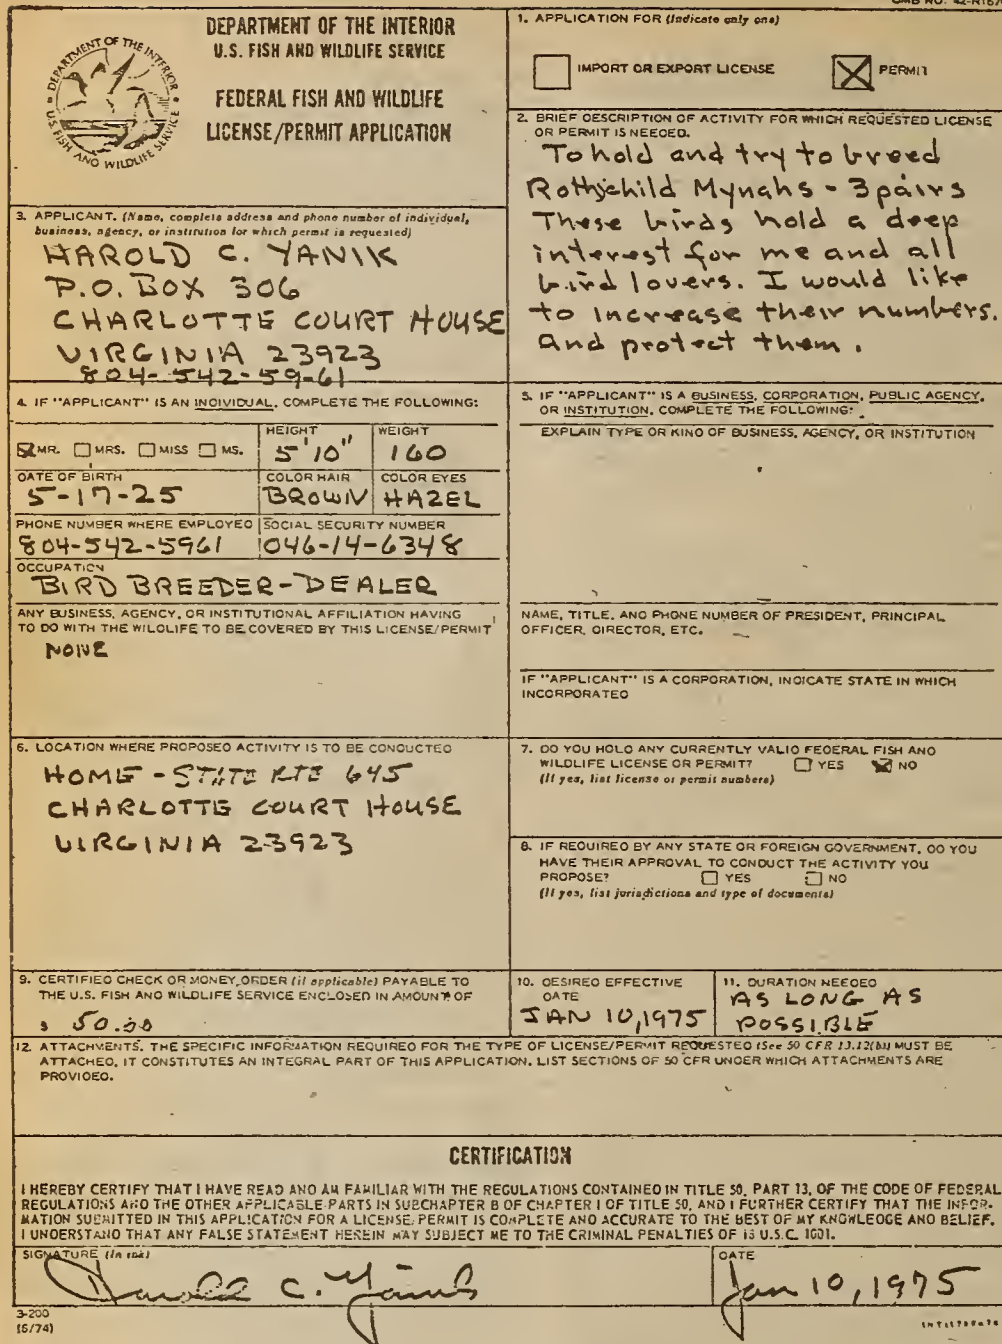 OMB NO. 42-R1670
DEPARTMENT OF THE INTERIOR
U.S. FISH AND WILDLIFE SERVICE
FEDERAL FISH AND WILDLIFE
LICENSE/PERMIT APPLICATION
DEPARTMENT OF THE INTERIOR
U.S. FISH AND WILDLIFE SERVICE
1. APPLICATION FOR (Indicate only one)
IMPORT OR EXPORT LICENSE
PERMIT
2. BRIEF DESCRIPTION OF ACTIVITY FOR WHICH REQUESTED LICENSE
OR PERMIT IS NEEDED.
To hold and try to breed
Rothschild Mynahs - 3 pairs
These birds hold a deep
interest for me and all
bird lovers. I would like
to increase their numbers.
And protect them.
3. APPLICANT. (Name, complete address and phone number of individual,
business, agency, or institution for which permit is requested)
HAROLD C. YANIK
P.O. BOX 306
CHARLOTTE COURT HOUSE
VIRGINIA 23923
804-542-59-61
4. IF "APPLICANT" IS AN INDIVIDUAL, COMPLETE THE FOLLOWING:
MR. MRS. MISS MS.
HEIGHT
5'10"
WEIGHT
160
DATE OF BIRTH
5-17-25
COLOR HAIR
BROWN
COLOR EYES
HAZEL
PHONE NUMBER WHERE EMPLOYED
804-542-5961
SOCIAL SECURITY NUMBER
046-14-6348
OCCUPATION
BIRD BREEDER-DEALER
ANY BUSINESS, AGENCY, OR INSTITUTIONAL AFFILIATION HAVING
TO DO WITH THE WILDLIFE TO BE COVERED BY THIS LICENSE/PERMIT
NONE
5. IF "APPLICANT" IS A BUSINESS, CORPORATION, PUBLIC AGENCY,
OR INSTITUTION, COMPLETE THE FOLLOWING:
EXPLAIN TYPE OR KIND OF BUSINESS, AGENCY, OR INSTITUTION
NAME, TITLE, AND PHONE NUMBER OF PRESIDENT, PRINCIPAL
OFFICER, DIRECTOR, ETC.
IF "APPLICANT" IS A CORPORATION, INDICATE STATE IN WHICH
INCORPORATED
6. LOCATION WHERE PROPOSED ACTIVITY IS TO BE CONDUCTED
HOME - STATE RTE 645
CHARLOTTE COURT HOUSE
VIRGINIA 23923
7. DO YOU HOLD ANY CURRENTLY VALID FEDERAL FISH AND
WILDLIFE LICENSE OR PERMIT? YES NO
(If yes, list license or permit numbers)
8. IF REQUIRED BY ANY STATE OR FOREIGN GOVERNMENT, DO YOU
HAVE THEIR APPROVAL TO CONDUCT THE ACTIVITY YOU
PROPOSE? YES NO
(If yes, list jurisdictions and type of documents)
9. CERTIFIED CHECK OR MONEY ORDER (if applicable) PAYABLE TO
THE U.S. FISH AND WILDLIFE SERVICE ENCLOSED IN AMOUNT OF
$ 50.00
10. DESIRED EFFECTIVE
DATE
JAN 10, 1975
11. DURATION NEEDED
AS LONG AS
POSSIBLE
12. ATTACHMENTS. THE SPECIFIC INFORMATION REQUIRED FOR THE TYPE OF LICENSE/PERMIT REQUESTED (See 50 CFR 13.12(b)) MUST BE
ATTACHED, IT CONSTITUTES AN INTEGRAL PART OF THIS APPLICATION. LIST SECTIONS OF 50 CFR UNDER WHICH ATTACHMENTS ARE
PROVIDED.
CERTIFICATION
I HEREBY CERTIFY THAT I HAVE READ AND AM FAMILIAR WITH THE REGULATIONS CONTAINED IN TITLE 50, PART 13, OF THE CODE OF FEDERAL
REGULATIONS AND THE OTHER APPLICABLE PARTS IN SUBCHAPTER B OF CHAPTER I OF TITLE 50, AND I FURTHER CERTIFY THAT THE INFOR-
MATION SUBMITTED IN THIS APPLICATION FOR A LICENSE/PERMIT IS COMPLETE AND ACCURATE TO THE BEST OF MY KNOWLEDGE AND BELIEF.
I UNDERSTAND THAT ANY FALSE STATEMENT HEREIN MAY SUBJECT ME TO THE CRIMINAL PENALTIES OF 18 U.S.C. 1001.
SIGNATURE (In ink)
Harold C. Yanik
DATE
Jan 10, 1975
3-200
(6/74)